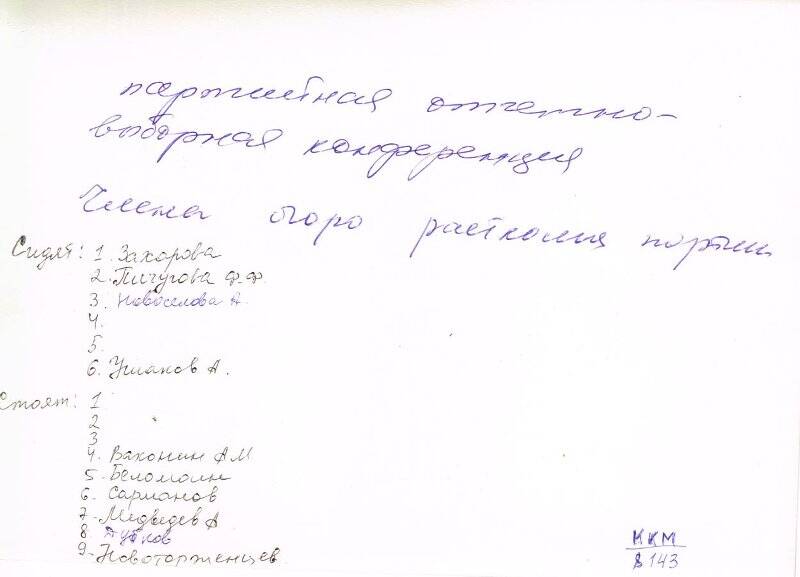 партийная отчетно-
выборная конференция
Члены бюро райкома партии
Сидят: 1. Захарова
2. Пичугова Ф.Ф.
3. Новоселова А.
4.
5.
6. Ушаков А.
Стоят: 1
2
3
4. Вахонин АМ
5. Беломоин
6. Сарманов
7. Медведев А
8
9. Новоторженцев
НКМ
8143